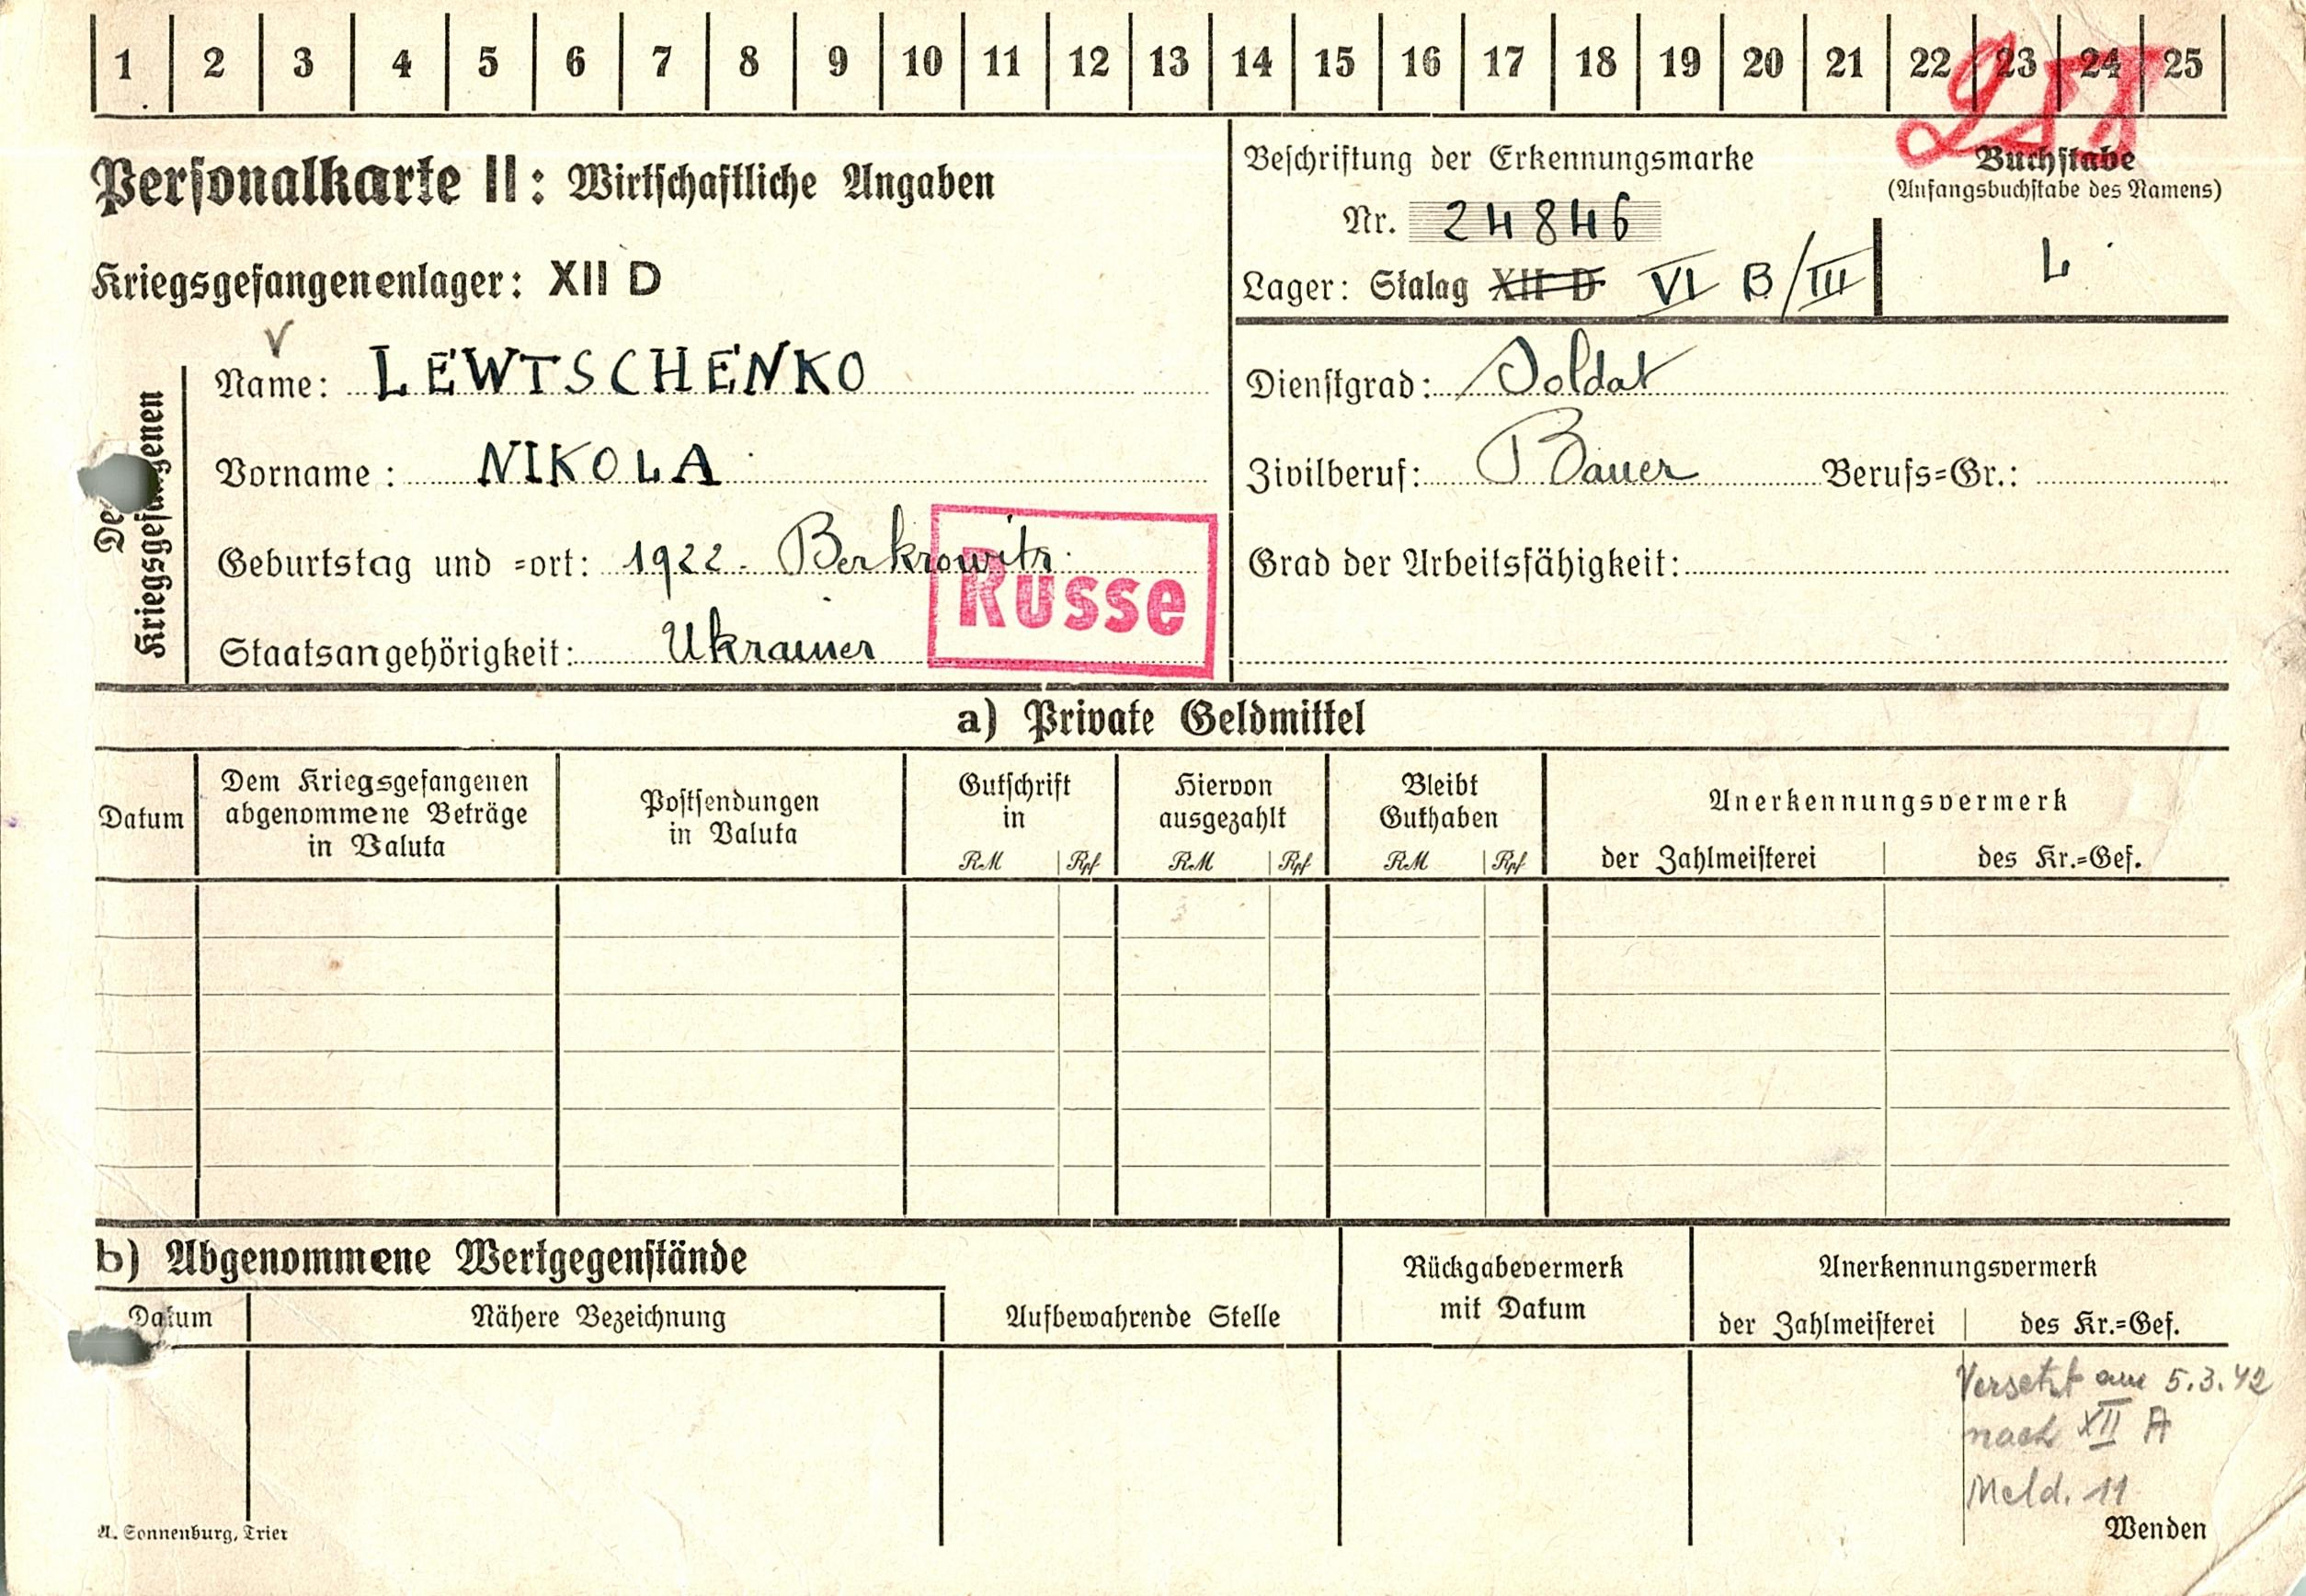 1 2 3 4 5 6 7 8 9 10 11 12 13 14 15 16 17 18 19 20 21 22 23 24 25
Personalkarte II: Wirtschaftliche Angaben
Kriegsgefangenenlager: XII D
Beschriftung der Erkennungsmarke
Nr. 24846
Lager: Stalag XII D VI B/III
Buchstabe
(Anfangsbuchstabe des Namens)
L
Des Kriegsgefangenen
Name: LEWTSCHENKO
Vorname: NIKOLA
Geburtstag und =ort: 1922. Berkrowitz
Staatsangehörigkeit: Ukrainer
Russe
Dienstgrad: Soldat
Zivilberuf: Bauer Berufs=Gr.:
Grad der Arbeitsfähigkeit:
a) Private Geldmittel
Datum
Dem Kriegsgefangenen
abgenommene Beträge
in Valuta
Postsendungen
in Valuta
Gutschrift
in
RM Rpf
Hiervon
ausgezahlt
RM Rpf
Bleibt
Guthaben
RM Rpf
Anerkennungsvermerk
der Zahlmeisterei des Kr.=Gef.
b) Abgenommene Wertgegenstände
Datum Nähere Bezeichnung
Aufbewahrende Stelle
Rückgabevermerk
mit Datum
Anerkennungsvermerk
der Zahlmeisterei des Kr.=Gef.
Versetzt am 5.3.42
nach XII A
Meld. 11
A. Sonnenburg, Trier
Wenden